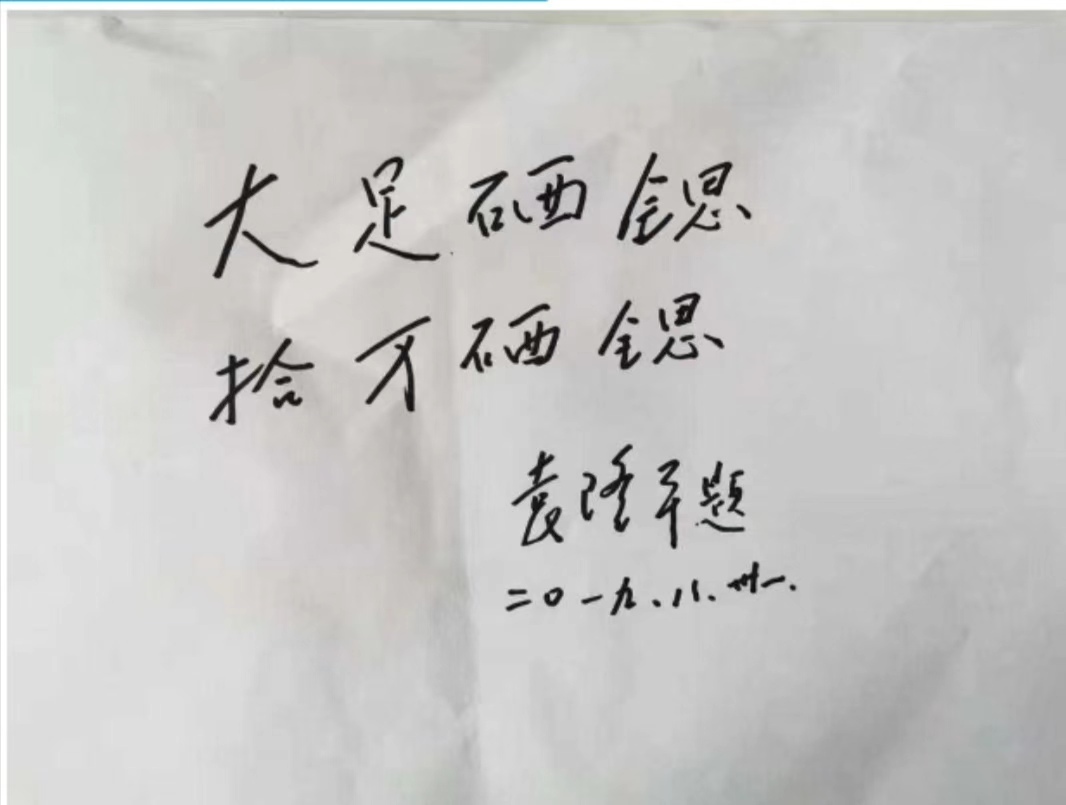 大足硒锶
拾万硒锶
袁隆平题
二0一九.八.卅一.